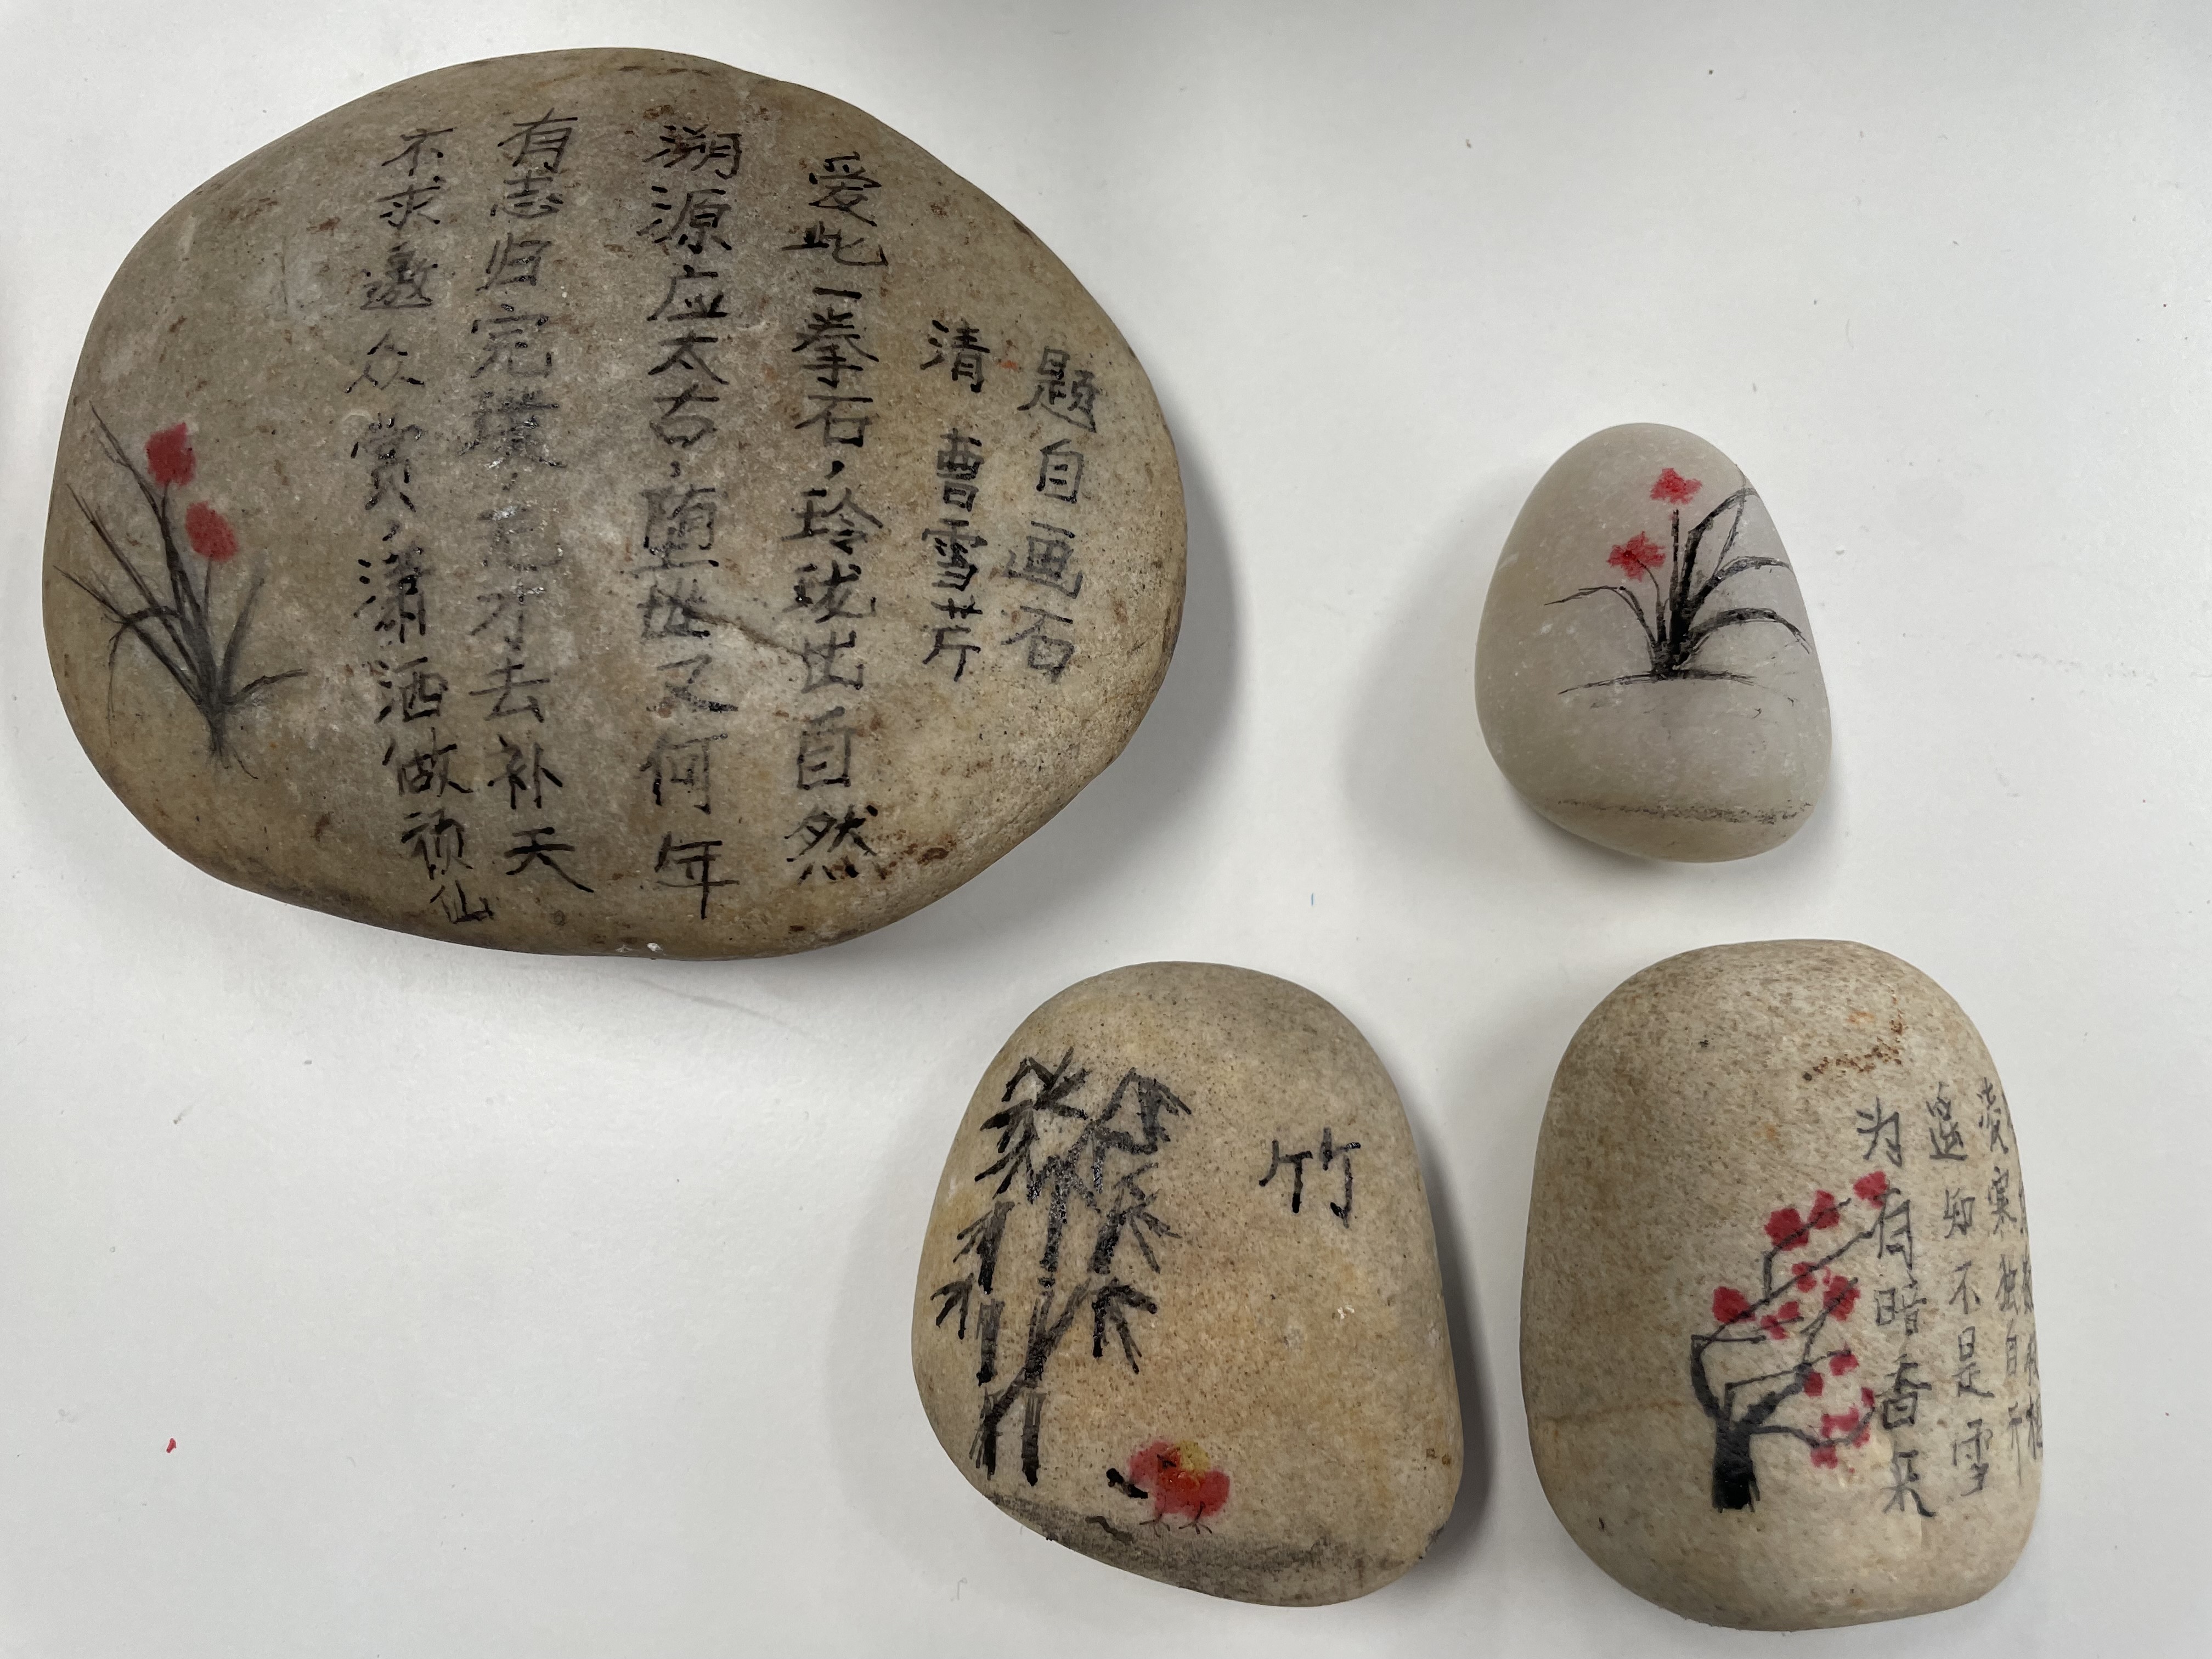 题自画石
清 曹雪芹
爱此一拳石，玲珑出自然
溯源应太古，堕世又何年
有志归完璞，无才去补天
不求邀众赏，潇洒做顽仙
竹
凌寒独自开
遥知不是雪
为有暗香来